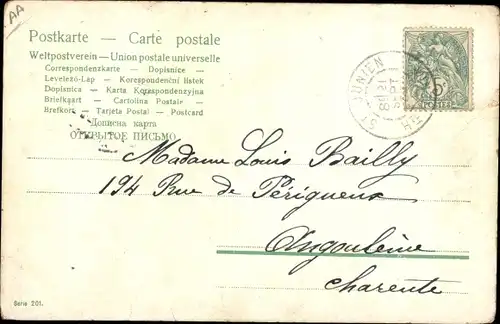 AA
Postkarte — Carte postale
Weltpostverein — Union postale universelle
Correspondenzkarte - Dopisnice -
Levelező-Lap - Korespondenční listek
Dopisnica - Karta Korespondenzyjna
Briefkaart - Cartolina Postale -
Brefkort - Tarjeta Postal - Postcard
Дописна карта
ОТКРЫТОЕ ПИСЬМО
ST JUNIEN
5
Madame Louis Bailly
194 Rue de Périgueux
Angoulême
Charente
Serie 201.